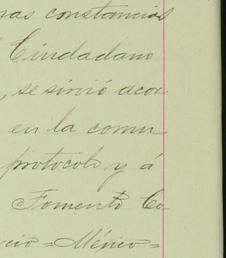 nas constancias
Ciudadano
, se sirvió acor
en la comu
protocolo y á
Fomento Co-
cio = México =